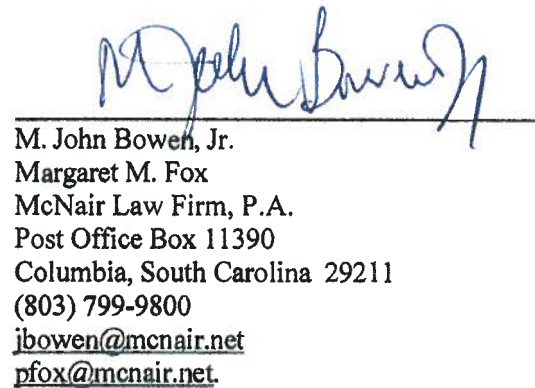 M John Bowen Jr
M. John Bowen, Jr.
Margaret M. Fox
McNair Law Firm, P.A.
Post Office Box 11390
Columbia, South Carolina 29211
(803) 799-9800
jbowen@mcnair.net
pfox@mcnair.net.